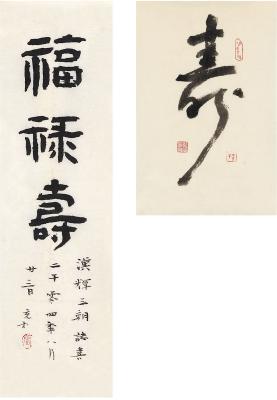 福
祿
壽
漢輝三朝誌喜
二千零四年八月
廿三日
壽